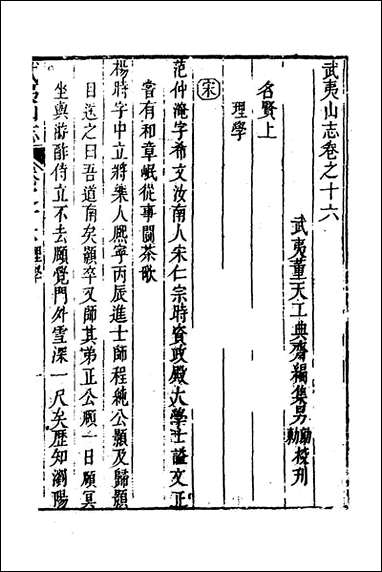 武夷山志卷之十六
武夷董天工典齋編集男勳校刋
名賢上
理學
宋
范仲淹字希文汝南人宋仁宗時資政殿大學士謚文正
嘗有和章岷從事鬬茶歌
楊時字中立將樂人熈寧丙辰進士師程純公顥及歸顥
目送之曰吾道南矣顥卒又師其弟正公頤一日頤冥
坐與游酢侍立不去頤覺門外雪深一尺矣歷知瀏陽
武夷山志
理學
一